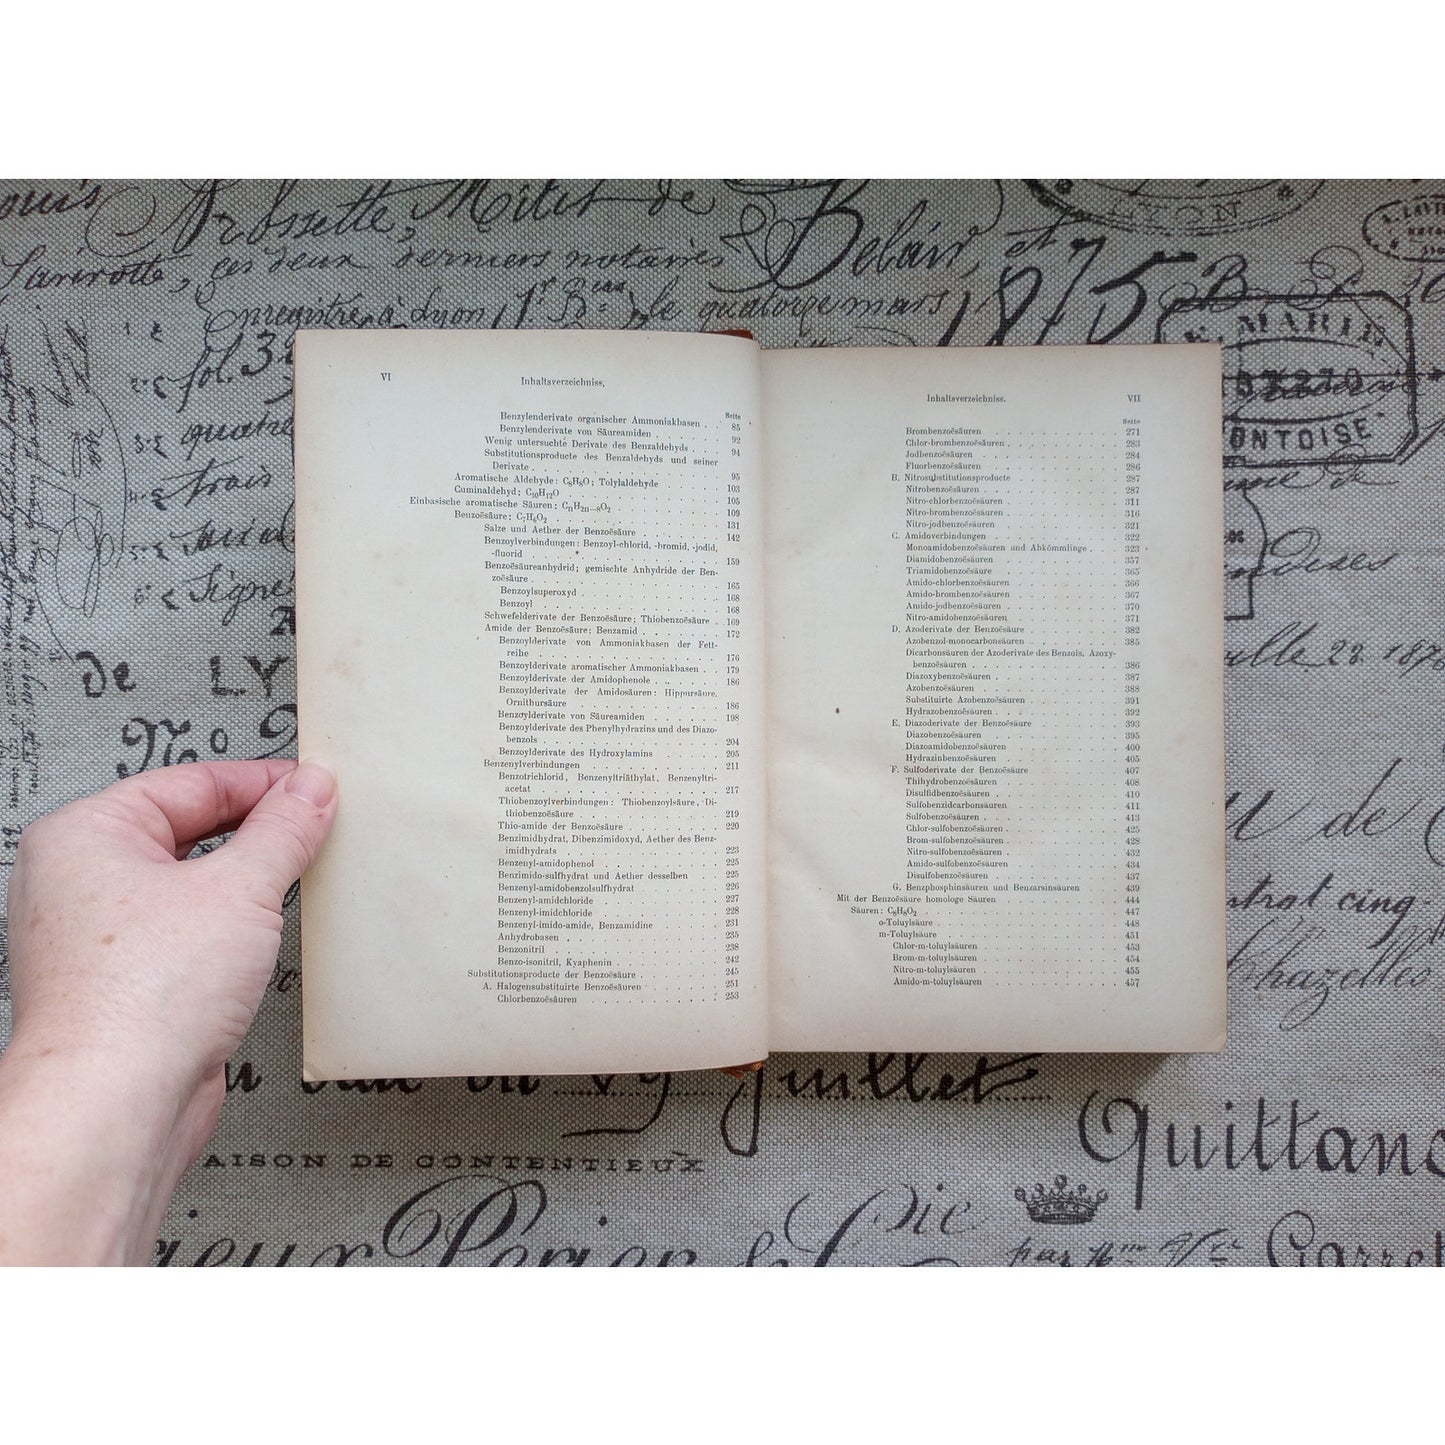 VI
Inhaltsverzeichniss.
Seite
Benzylenderivate organischer Ammoniakbasen . . 85
Benzylenderivate von Säureamiden . . . . . 92
Wenig untersuchte Derivate des Benzaldehyds . . . 94
Substitutionsproducte des Benzaldehyds und seiner
Derivate . . . . . . . . . . 95
Aromatische Aldehyde: C8H8O; Tolylaldehyde . . . 103
Cuminaldehyd; C10H12O . . . . . . . 105
Einbasische aromatische Säuren; CnH2n—8O2 . . . . 109
Benzoësäure; C7H6O2 . . . . . . . 131
Salze und Aether der Benzoësäure . . . . . 142
Benzoylverbindungen: Benzoyl-chlorid, -bromid, -jodid,
-fluorid . . . . . . . . . . 159
Benzoësäureanhydrid; gemischte Anhydride der Ben-
zoësäure . . . . . . . . . . 165
Benzoylsuperoxyd . . . . . . . . 168
Benzoyl . . . . . . . . . . 168
Schwefelderivate der Benzoësäure; Thiobenzoësäure . 169
Amide der Benzoësäure; Benzamid . . . . . 172
Benzoylderivate von Ammoniakbasen der Fett-
reihe . . . . . . . . . . 176
Benzoylderivate aromatischer Ammoniakbasen . . 179
Benzoylderivate der Amidophenole . . . . . 186
Benzoylderivate der Amidosäuren: Hippursäure,
Ornithursäure . . . . . . . . 186
Benzoylderivate von Säureamiden . . . . . 198
Benzoylderivate des Phenylhydrazins und des Diazo-
benzols . . . . . . . . . . 204
Benzoylderivate des Hydroxylamins . . . . 205
Benzenylverbindungen . . . . . . . . 211
Benzotrichlorid, Benzenyltriäthylat, Benzenyltri-
acetat . . . . . . . . . . 217
Thiobenzoylverbindungen: Thiobenzoylsäure, Di-
thiobenzoësäure . . . . . . . . 219
Thio-amide der Benzoësäure . . . . . . 220
Benzimidhydrat, Dibenzimidoxyd, Aether des Benz-
imidhydrats . . . . . . . . . 223
Benzenyl-amidophenol . . . . . . . 225
Benzimido-sulfhydrat und Aether desselben . . . 225
Benzenyl-amidobenzolsulfhydrat . . . . . 226
Benzenyl-amidchloride . . . . . . . 227
Benzenyl-imidchloride . . . . . . . 228
Benzenyl-imido-amide, Benzamidine . . . . 231
Anhydrobasen . . . . . . . . . 235
Benzonitril . . . . . . . . . . 238
Benzo-isonitril, Kyaphenin . . . . . . 242
Substitutionsproducte der Benzoësäure . . . . . 245
A. Halogensubstituirte Benzoësäuren . . . . . 251
Chlorbenzoësäuren . . . . . . . 253
Inhaltsverzeichniss.
VII
Seite
Brombenzoësäuren . . . . . . . . 271
Chlor-brombenzoësäuren . . . . . . . 283
Jodbenzoësäuren . . . . . . . . 284
Fluorbenzoësäuren . . . . . . . . 286
B. Nitrosubstitutionsproducte . . . . . . . 287
Nitrobenzoësäuren . . . . . . . . 287
Nitro-chlorbenzoësäuren . . . . . . . 311
Nitro-brombenzoësäuren . . . . . . . 316
Nitro-jodbenzoësäuren . . . . . . . 321
C. Amidoverbindungen . . . . . . . . 322
Monoamidobenzoësäuren und Abkömmlinge . . . 323
Diamidobenzoësäuren . . . . . . . 357
Triamidobenzoësäure . . . . . . . 365
Amido-chlorbenzoësäuren . . . . . . 366
Amido-brombenzoësäuren . . . . . . 367
Amido-jodbenzoësäuren . . . . . . . 370
Nitro-amidobenzoësäuren . . . . . . 371
D. Azoderivate der Benzoësäure . . . . . . 382
Azobenzol-monocarbonsäuren . . . . . . 385
Dicarbonsäuren der Azoderivate des Benzols, Azoxy-
benzoësäuren . . . . . . . . . 386
Diazoxybenzoësäuren . . . . . . . . 387
Azobenzoësäuren . . . . . . . . 388
Substituirte Azobenzoësäuren . . . . . 391
Hydrazobenzoësäuren . . . . . . . . 392
E. Diazoderivate der Benzoësäure . . . . . 393
Diazobenzoësäuren . . . . . . . . 395
Diazoamidobenzoësäuren . . . . . . . 400
Hydrazinbenzoësäuren . . . . . . . 405
F. Sulfoderivate der Benzoësäure . . . . . 407
Thihydrobenzoësäuren . . . . . . . 408
Disulfidbenzoësäuren . . . . . . . 410
Sulfobenzidcarbonsäuren . . . . . . 411
Sulfobenzoësäuren . . . . . . . . 413
Chlor-sulfobenzoësäuren . . . . . . . 425
Brom-sulfobenzoësäuren . . . . . . . 428
Nitro-sulfobenzoësäuren . . . . . . . 432
Amido-sulfobenzoësäuren . . . . . . 434
Disulfobenzoësäuren . . . . . . . . 437
G. Benzphosphinsäuren und Benzarsinsäuren . . . 439
Mit der Benzoësäure homologe Säuren . . . . . 444
Säuren: C8H8O2 . . . . . . . . 447
o-Toluylsäure . . . . . . . . . 448
m-Toluylsäure . . . . . . . . . 451
Chlor-m-toluylsäuren . . . . . . . 453
Brom-m-toluylsäuren . . . . . . . 454
Nitro-m-toluylsäuren . . . . . . . 455
Amido-m-toluylsäuren . . . . . . . 457
LYON
1875
MARIE
PONTOISE
de LY
No 9
Quittanc
AISON DE CONTENTIEUX